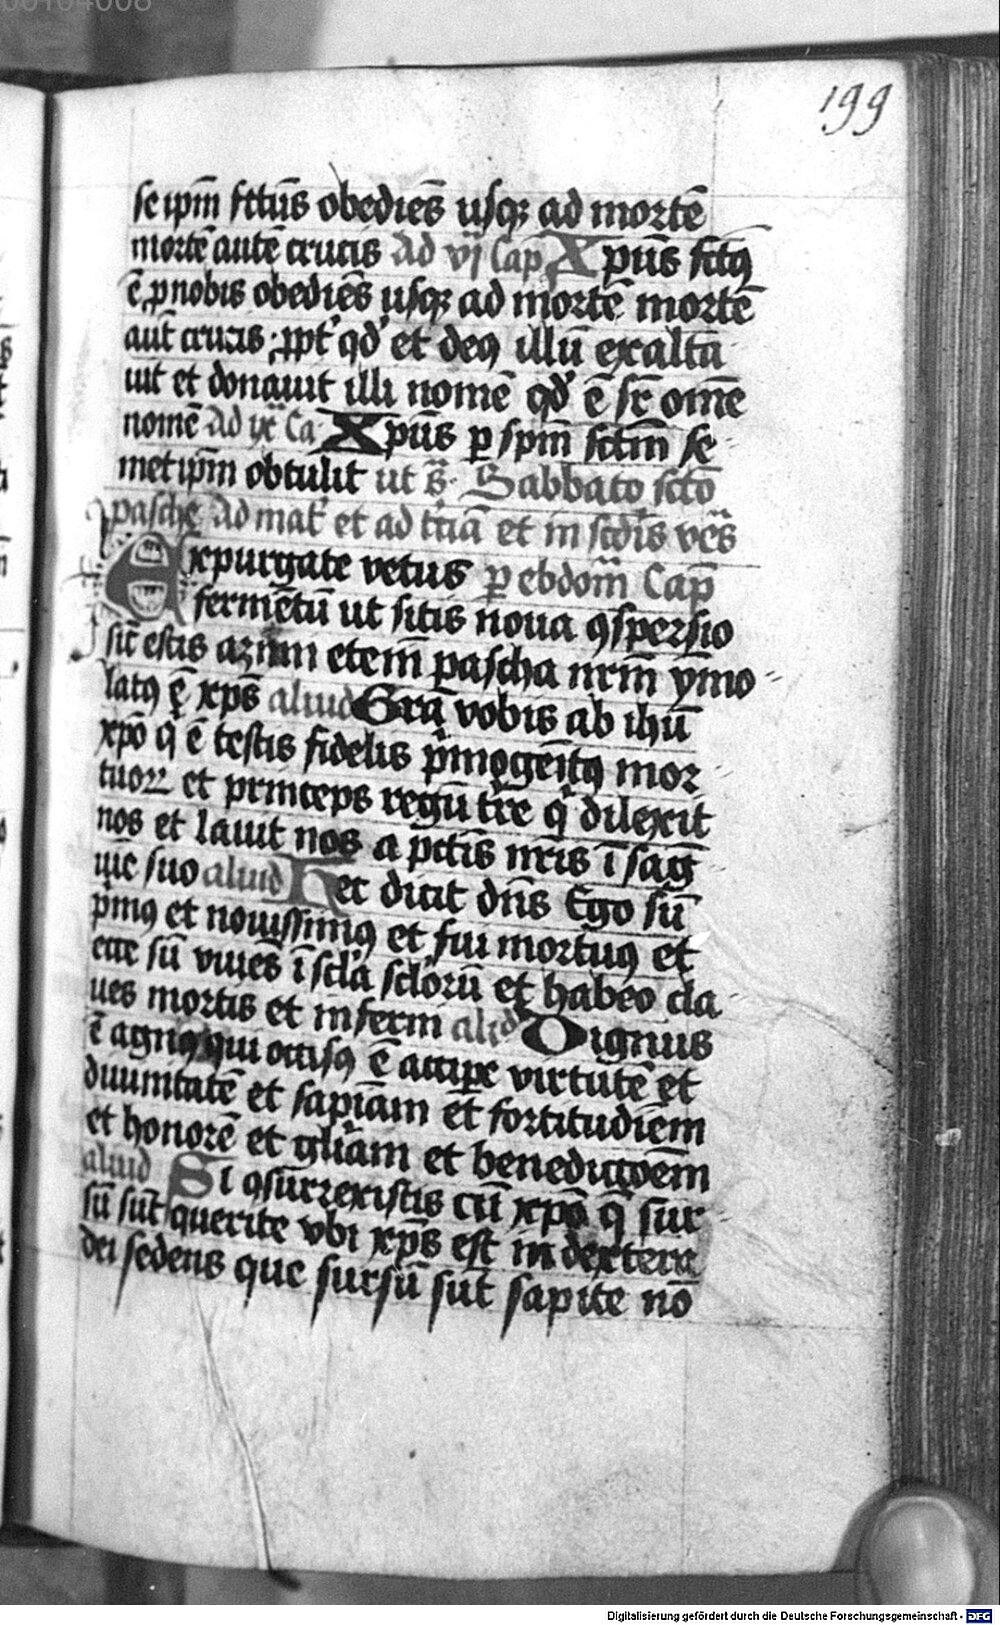 00104008
199
se ipm̄ fctūs obediēs usqꝫ ad mortē
mortē autē crucis Ad vj Cap̄ Xpūs fctꝯ
ē ꝓ nobis obediēs usqꝫ ad mortē mortē
aut̄ crucis ꝓpt' qd' et deꝯ illū exalta
uit et donauit illi nomē qd' ē sr̄ om̄e
nomē Ad ix Ca Xpūs ꝑ spm̄ sctm̄ se
met ipm̄ obtulit ut s̄ Sabbato sctō
pasche Ad mat' et ad t'ciā et in scdis vēs
Expurgate vetus ꝑ ebdom̄ Cap̄
fermētū ut sitis noua ꝯspersio
sic̄ estis azimi etem̄ pascha nrm̄ ymo
latꝯ ē xp̄s aliud Gr̄a vobis ab ihū
xp̄o q' ē testis fidelis p'mogēitꝯ mor
tuoꝝ et princeps regū t're q' dilexit
nos et lauit nos a pctīs nr̄is ī sāg
uīe suo aliud Hec dicit dn̄s Ego sū
p'mꝯ et nouissimꝯ et fui mortuꝯ et
ecce sū viuēs ī scl'a scl'orū et habeo cla
ues mortis et inferni aliud Dignus
ē agnꝯ qui occisꝯ ē accipe virtutē et
diuinitatē et sapiam̄ et fortitudiem̄
et honorē et gliam̄ et benedictōem̄
aliud Si ꝯsurrexistis cū xp̄o q̄ sur
sū sūt querite vbi xp̄s est in dextera
dei sedens que sursū sūt sapite nō
Digitalisierung gefördert durch die Deutsche Forschungsgemeinschaft - DFG